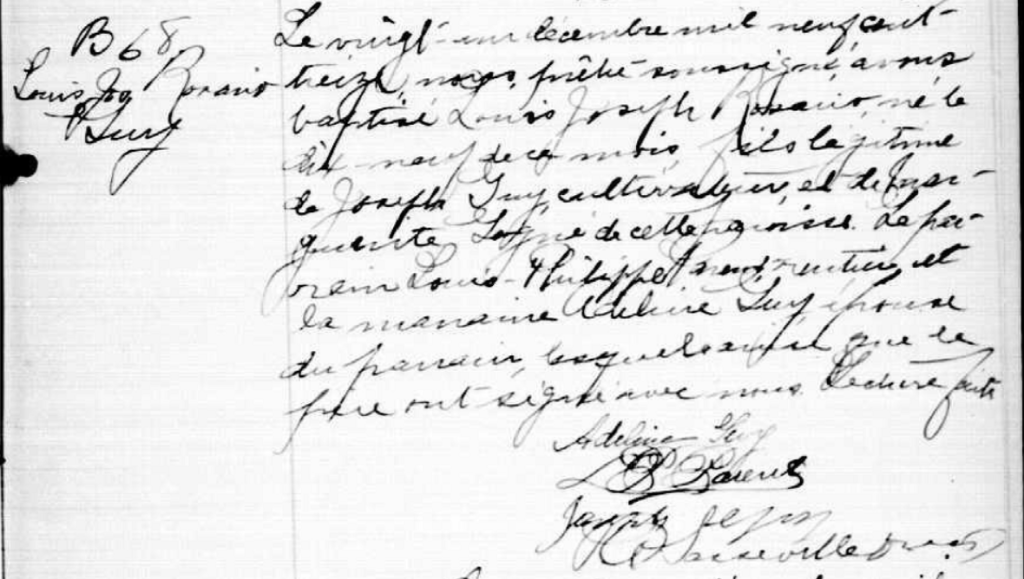 B 68
Louis Jos Rosario
Guy
Le vingt-un décembre mil neuf cent
treize, nous, prêtre soussigné, avons
baptisé Louis Joseph Rosario, né le
dix-neuf de ce mois, fils légitime
de Joseph Guy, cultivateur, et de
de cette paroisse. Le par-
rain Louis-Philippe Parent, rentier, et
la marraine Adeline Guy épouse
du parrain, lesquels ainsi que le
père ont signé avec nous. Lecture faite
Adeline Guy
L P Parent
Joseph